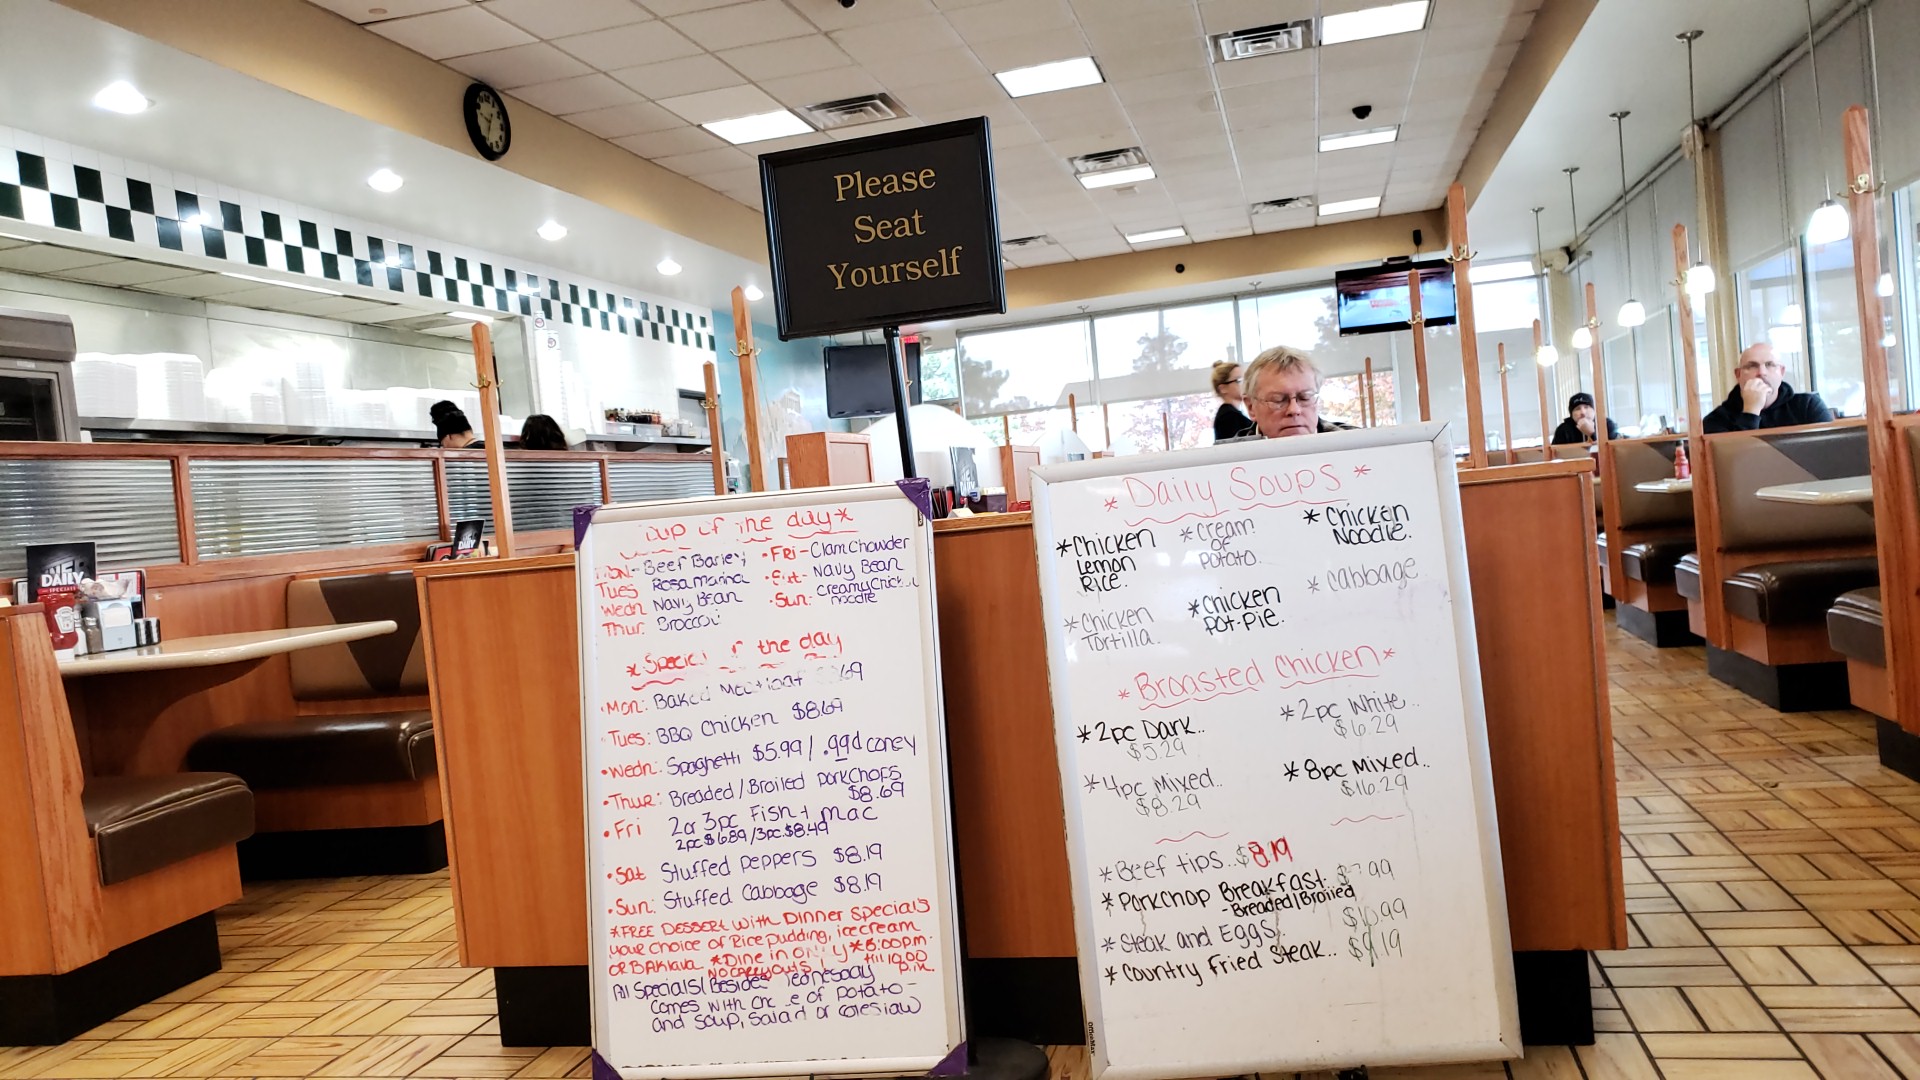 Please
Seat
Yourself
of the day*
Mon - Beef Barley
Tues Rosamarina
Wedn Navy Bean
Thur: Broccoli
• FRI - Clam Chowder
• Sat - Navy Bean
• Sun: creamy chicken
noodle
* Special of the day
• Mon: Baked Meatloaf
• Tues: BBQ Chicken $8.69
• Wedn: Spaghetti $5.99 / .99¢ coney
• Thur: Breaded / Broiled porkchops
$8.69
• Fri 2 or 3pc Fish + mac
2pc $6.89 / 3pc. $8.49
• Sat Stuffed peppers $8.19
• Sun: Stuffed Cabbage $8.19
* FREE DESSERT with Dinner specials
your choice of Rice pudding, ice cream
or Baklava * Dine in only * 6:00pm
No carryouts! till 10:00
p.m.
All Specials Besides Wednesday
comes with of potato -
and soup, salad or coleslaw
* Daily Soups *
* Chicken
Lemon
Rice.
* Cream
of
Potato.
* Chicken
Noodle.
* Chicken
Tortilla.
* Chicken
pot-pie.
* Cabbage
* Broasted Chicken *
* 2pc Dark..
$5.29
* 2pc White..
$6.29
* 4pc Mixed..
$8.29
* 8pc Mixed..
$16.29
* Beef tips.. $8.19
* Porkchop Breakfast. $7.99
- Breaded/Broiled
* Steak and Eggs $10.99
* Country Fried Steak.. $9.19
OfficeMax
DAILY
SPECIALS